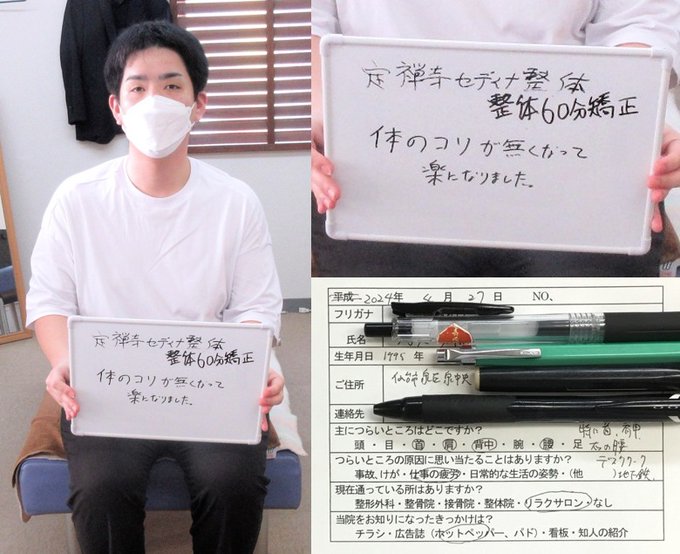 定禅寺セディナ整体
整体60分矯正
体のコリが無くなって
楽になりました。
定禅寺セディナ整体
整体60分矯正
体のコリが無くなって
楽になりました。
平成 2024年 4月 27日 NO、
フリガナ
氏名
生年月日 1995年
ご住所 仙台市泉区泉中央
連絡先
主につらいところはどこですか? 特に首、背中
頭・目・首・肩・背中・腕・腰・足
つらいところの原因に思い当たることはありますか? デスクワーク
事故、けが・仕事の疲労・日常的な生活の姿勢・(他 )
現在通っている所はありますか?
整形外科・整骨院・接骨院・整体院・リラクサロン・なし
当院をお知りになったきっかけは?
チラシ・広告誌(ホットペッパー、パド)・看板・知人の紹介